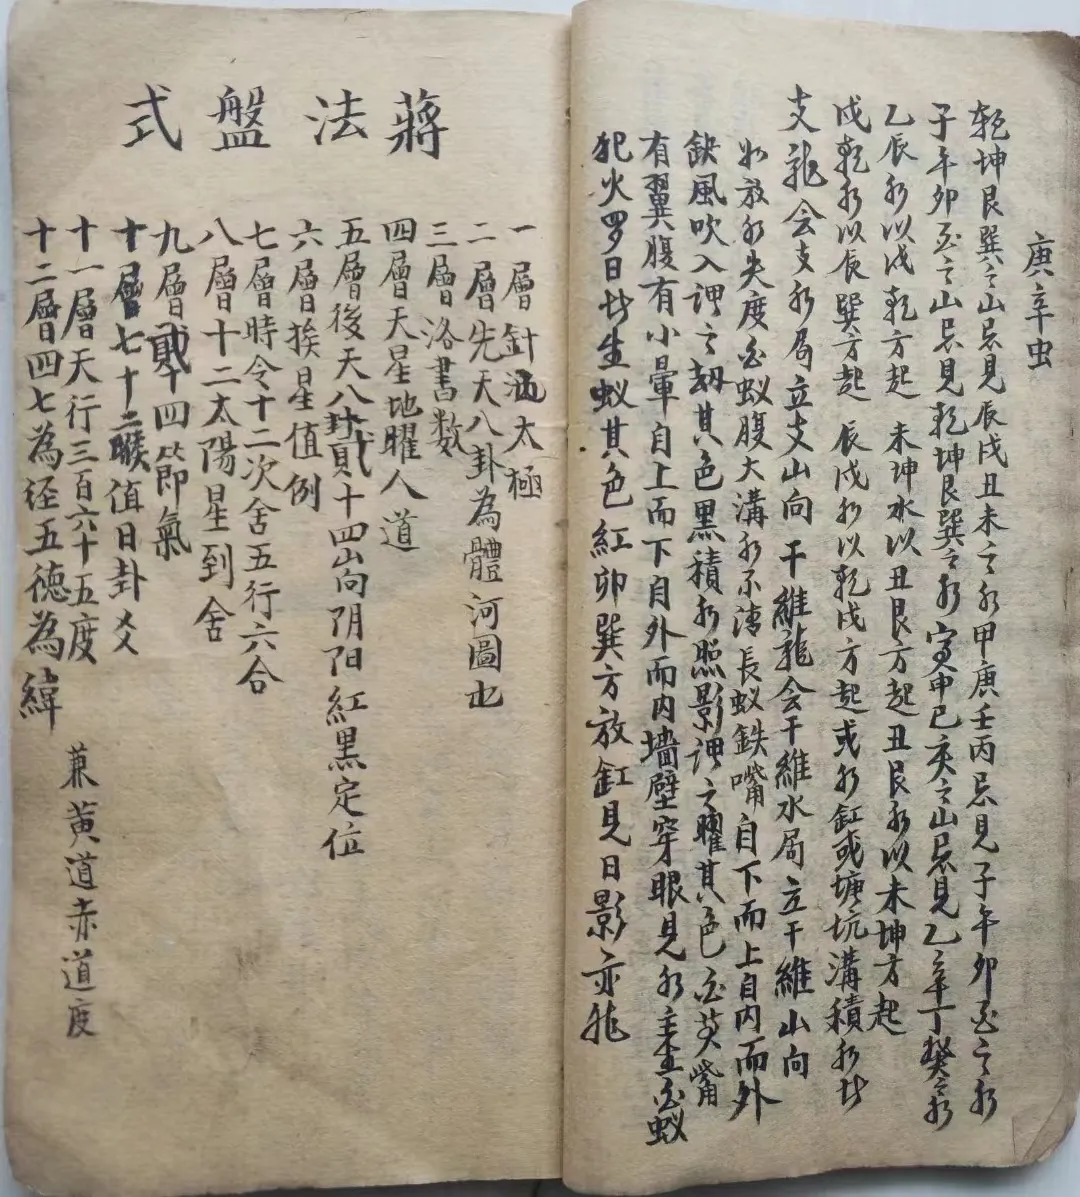 庚辛虫
乾坤艮巽之山忌見辰戌丑未之水甲庚壬丙忌見子午卯酉之水
子午卯酉之山忌見乾坤艮巽之水寅申巳亥之山忌見乙辛丁癸之水
乙辰水以戌乾方起 未坤水以丑艮方起丑艮水以未坤方起
戌乾水以辰巽方起 辰戌水以乾戌方起或水缸或塘坑溝積水皆
支龍会支水局立支山向干維龍会干維水局立干維山向
如放水失度白蚁腹大溝水不清長蚁鉄嘴自下而上自内而外
缺風吹入謂之刼其色黑積水照影謂之曜其色白英嘴
有翼腹有小暈自上而下自外而内墙壁穿眼見水主生白蚁
犯火罗日皆生蚁其色紅卯巽方放缸見日影亦能
蔣法盤式
一層針池太極
二層先天八卦為體河圖也
三層洛書数
四層天星地曜人道
五層後天八卦貳十四山向阴阳紅黑定位
六層挨星值例
七層時令十二次舍五行六合
八層十二太陽星到舍
九層貳十四節氣
十層七十二候值日卦爻
十一層天行三百六十五度
十二層四七為徑五德為緯
兼黄道赤道度